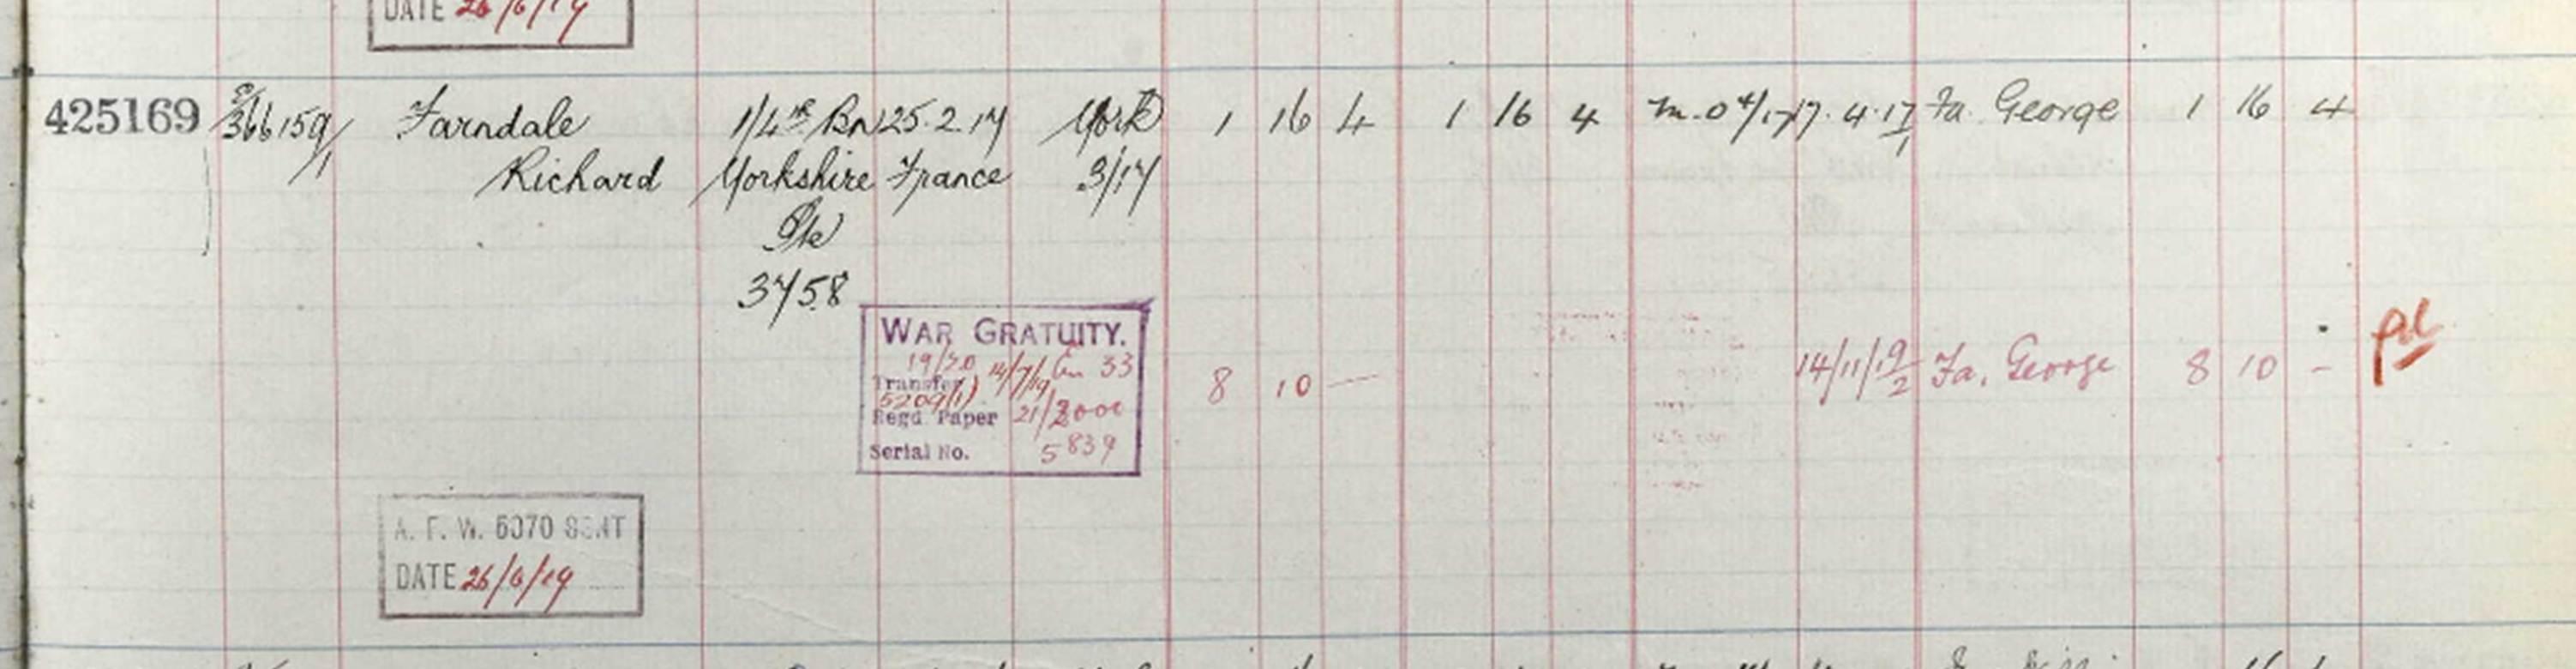 DATE 26/6/19
425169 E/ 366159/1 Farndale 1/4th Bn 25.2.17 York 1 16 4 1 16 4 M.O 4/17 17.4.17 Fa. George 1 16 4
Richard Yorkshire France 3/17 1
Pte
3758
WAR GRATUITY.
19/20 14/7/19 33
Transfer
5209(1)
Regd. Paper 21/8000
Serial No. 5839
8 10 — 14/11/19 2 Fa. George 8 10 - pd
A. F. W. 6070 SENT
DATE 26/6/19